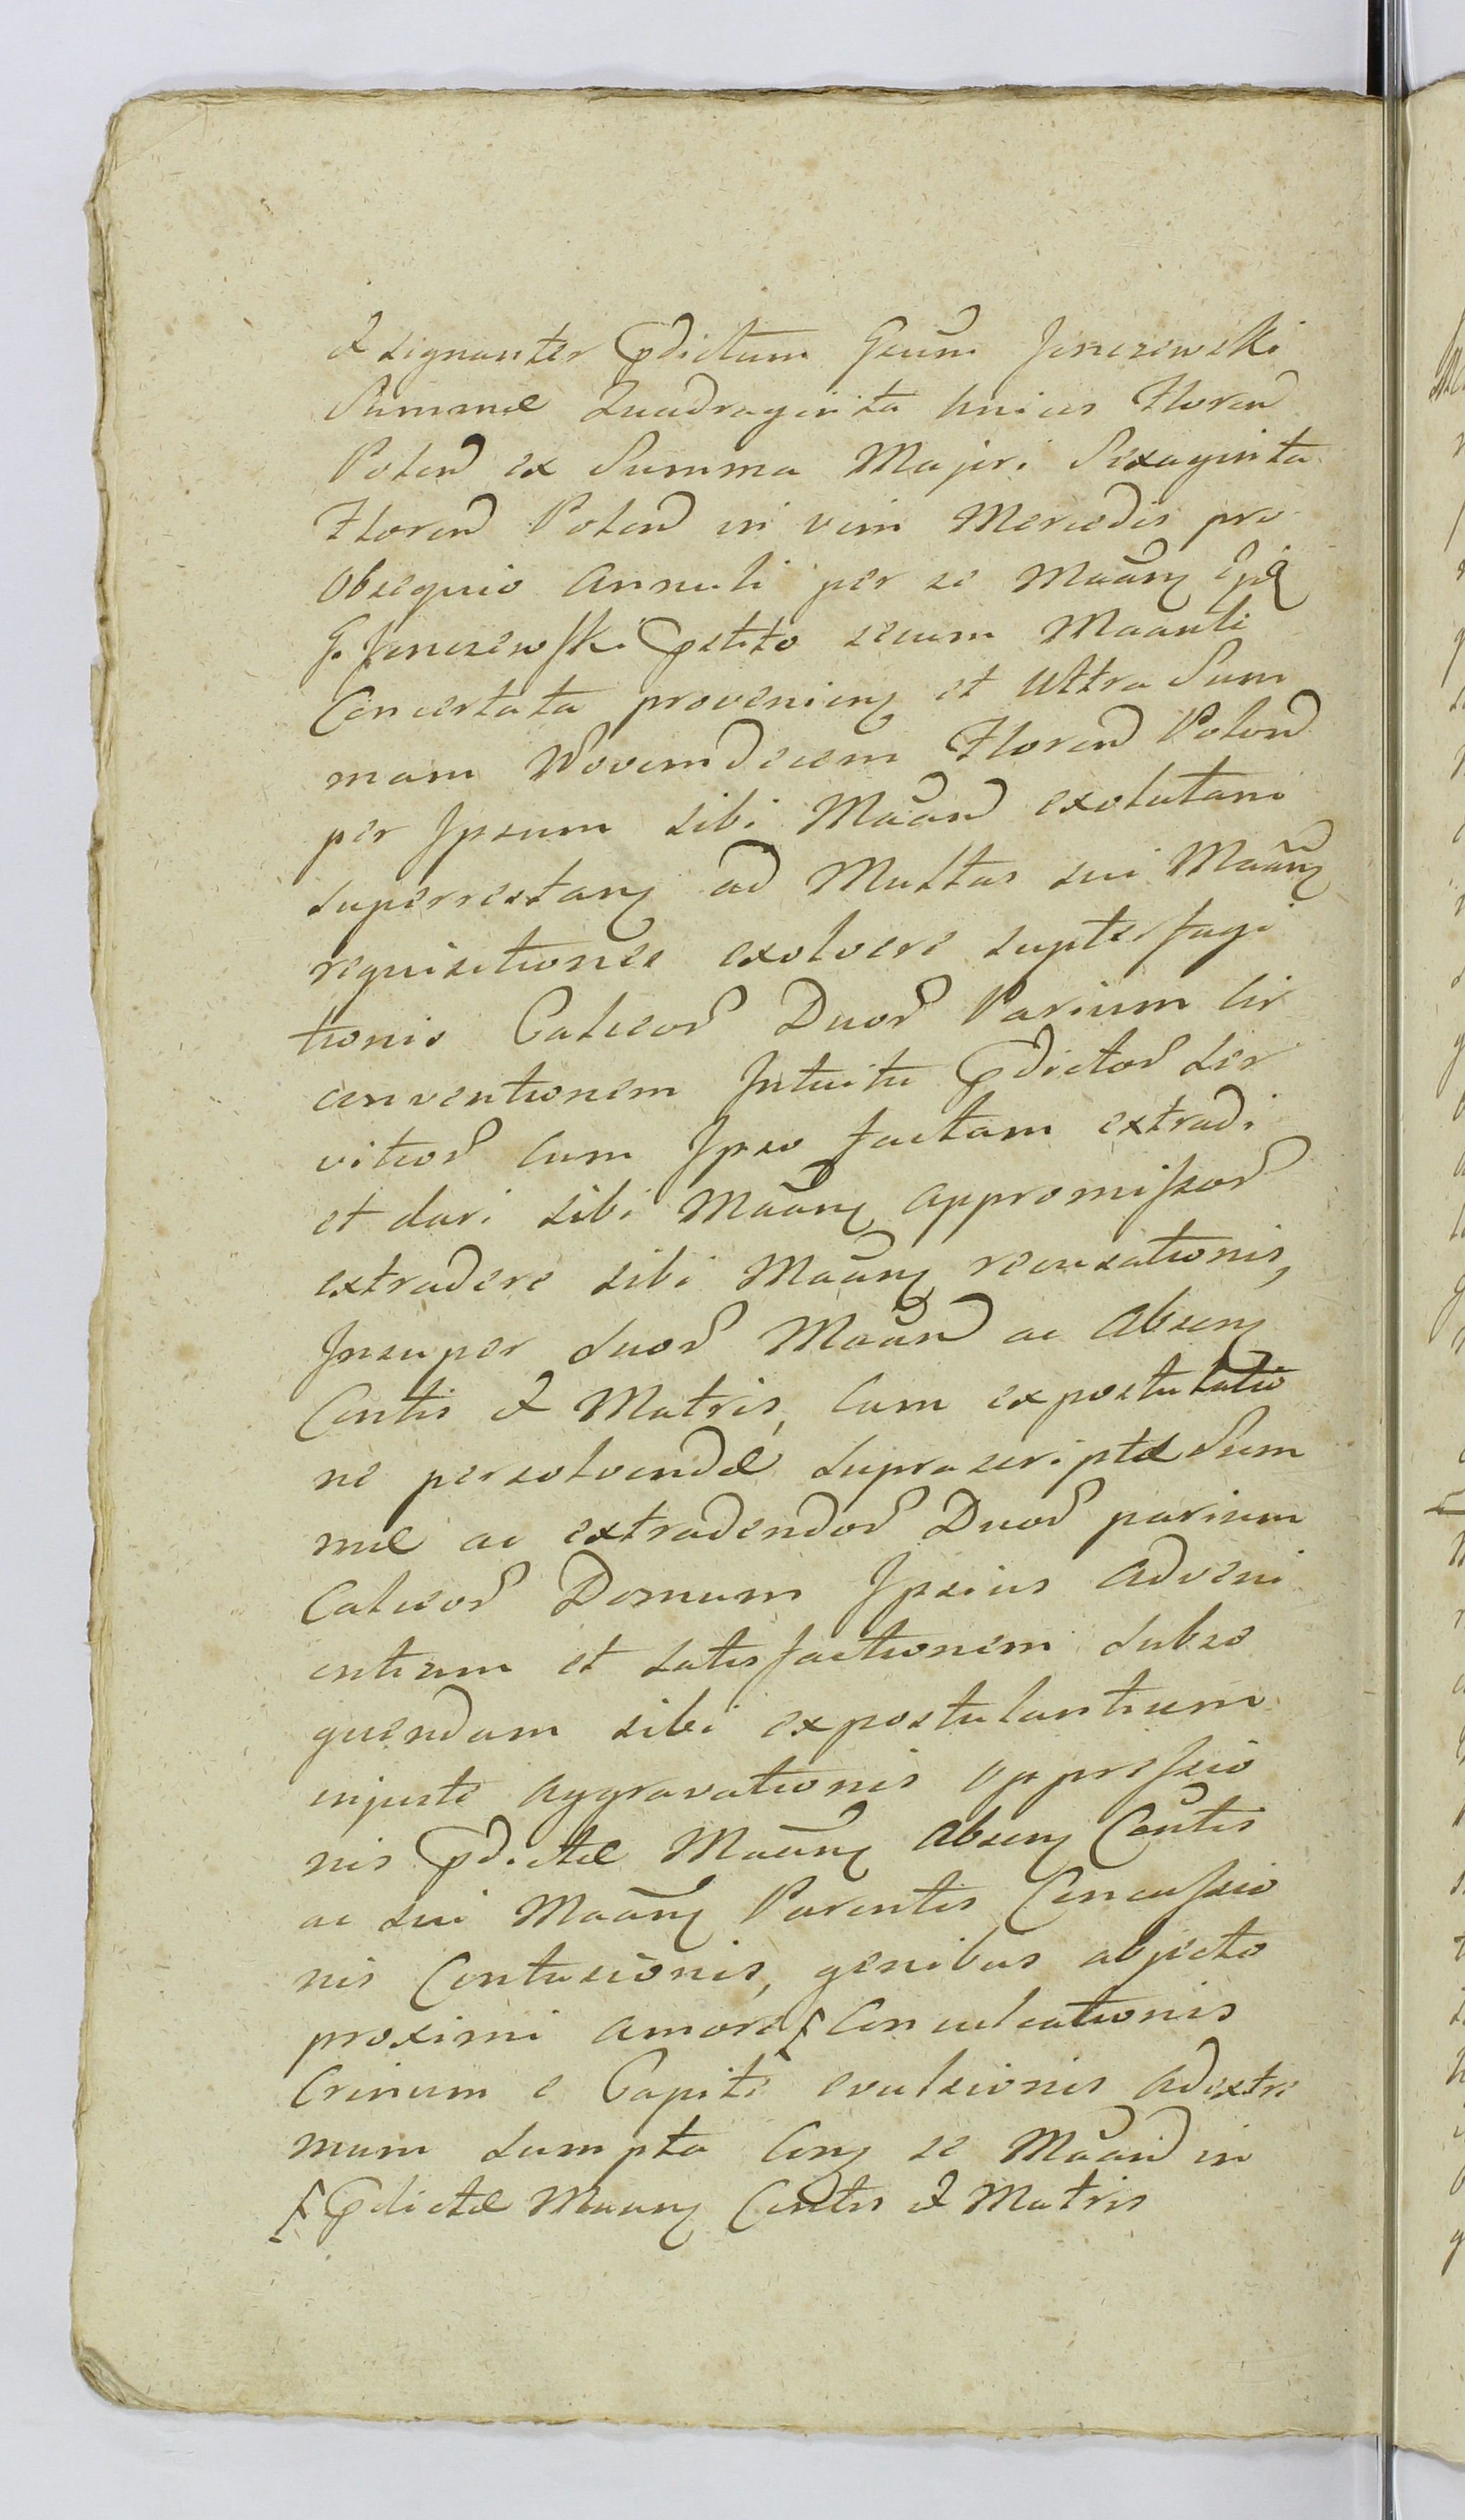 & signanter pdictum Gsum Janczewski
Summæ Quadraginta unius Floren
Polon ex Summa Majori Sexaginta
Floren Polon in vim Mercedis pro
obsequio annuli per se Maāng
G. Janczewski pstito secum Maanti
Concertata provenieng et ultra Sum
mam Novemdecem Floren Polon
per Ipsum sibi Maān exolutam
superrestang ad Multas sui Maāng
requisitiones exolvere supterfugi
tionis Calceor Duor Parium cir
conventionem Intuitu pdictor ser
vitior cum Ipso factam extradi
et dari sibi Maāng appromissor
extradere sibi Maāng recusationis,
Insuper duor Maān ac abseng
Contis & Matris, cum expostulatio
ne persolvendæ supra scriptæ Sum
mæ ac extradendor Duor parium
Calceor Domum Ipsius adveni
entium et satisfactionem subse
quendam sibi expostulantium
injuste aggravationis oppressio
nis pdictæ Maāng abseng Cōntis
ac sui Maāng Parentis Concussio
nis Contusionis, genibus abjecto
proximi amore ſ Conculcationis
Crinium e Capite evulsionis ad extre
mum sumpta cong se Maān in
ſ pdictæ Maang Contis & Matris